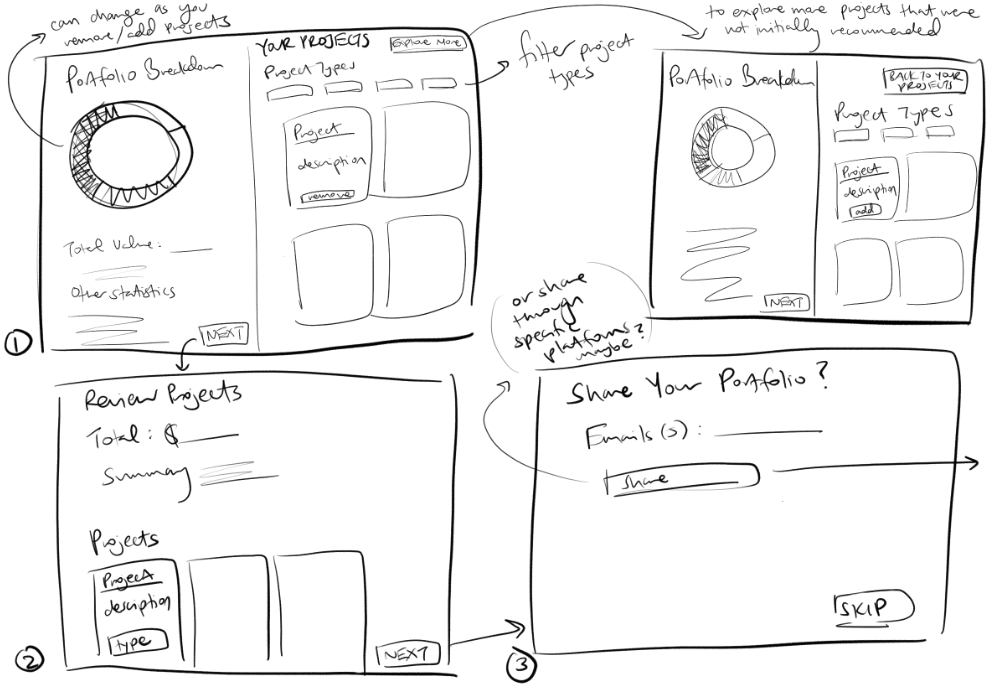 can change as you
remove/add projects
Portfolio Breakdown
Total Value:
Other statistics
NEXT
YOUR PROJECTS
Explore More
Project Types
Project
description
remove
filter project
types
to explore more projects that were
not initially recommended
Portfolio Breakdown
NEXT
BACK TO YOUR
PROJECTS
Project Types
Project
description
add
1
Review Projects
Total: $
Summary
Projects
Project
description
type
NEXT
2
or share
through
specific
platforms
maybe?
Share Your Portfolio?
Emails(s):
share
SKIP
3